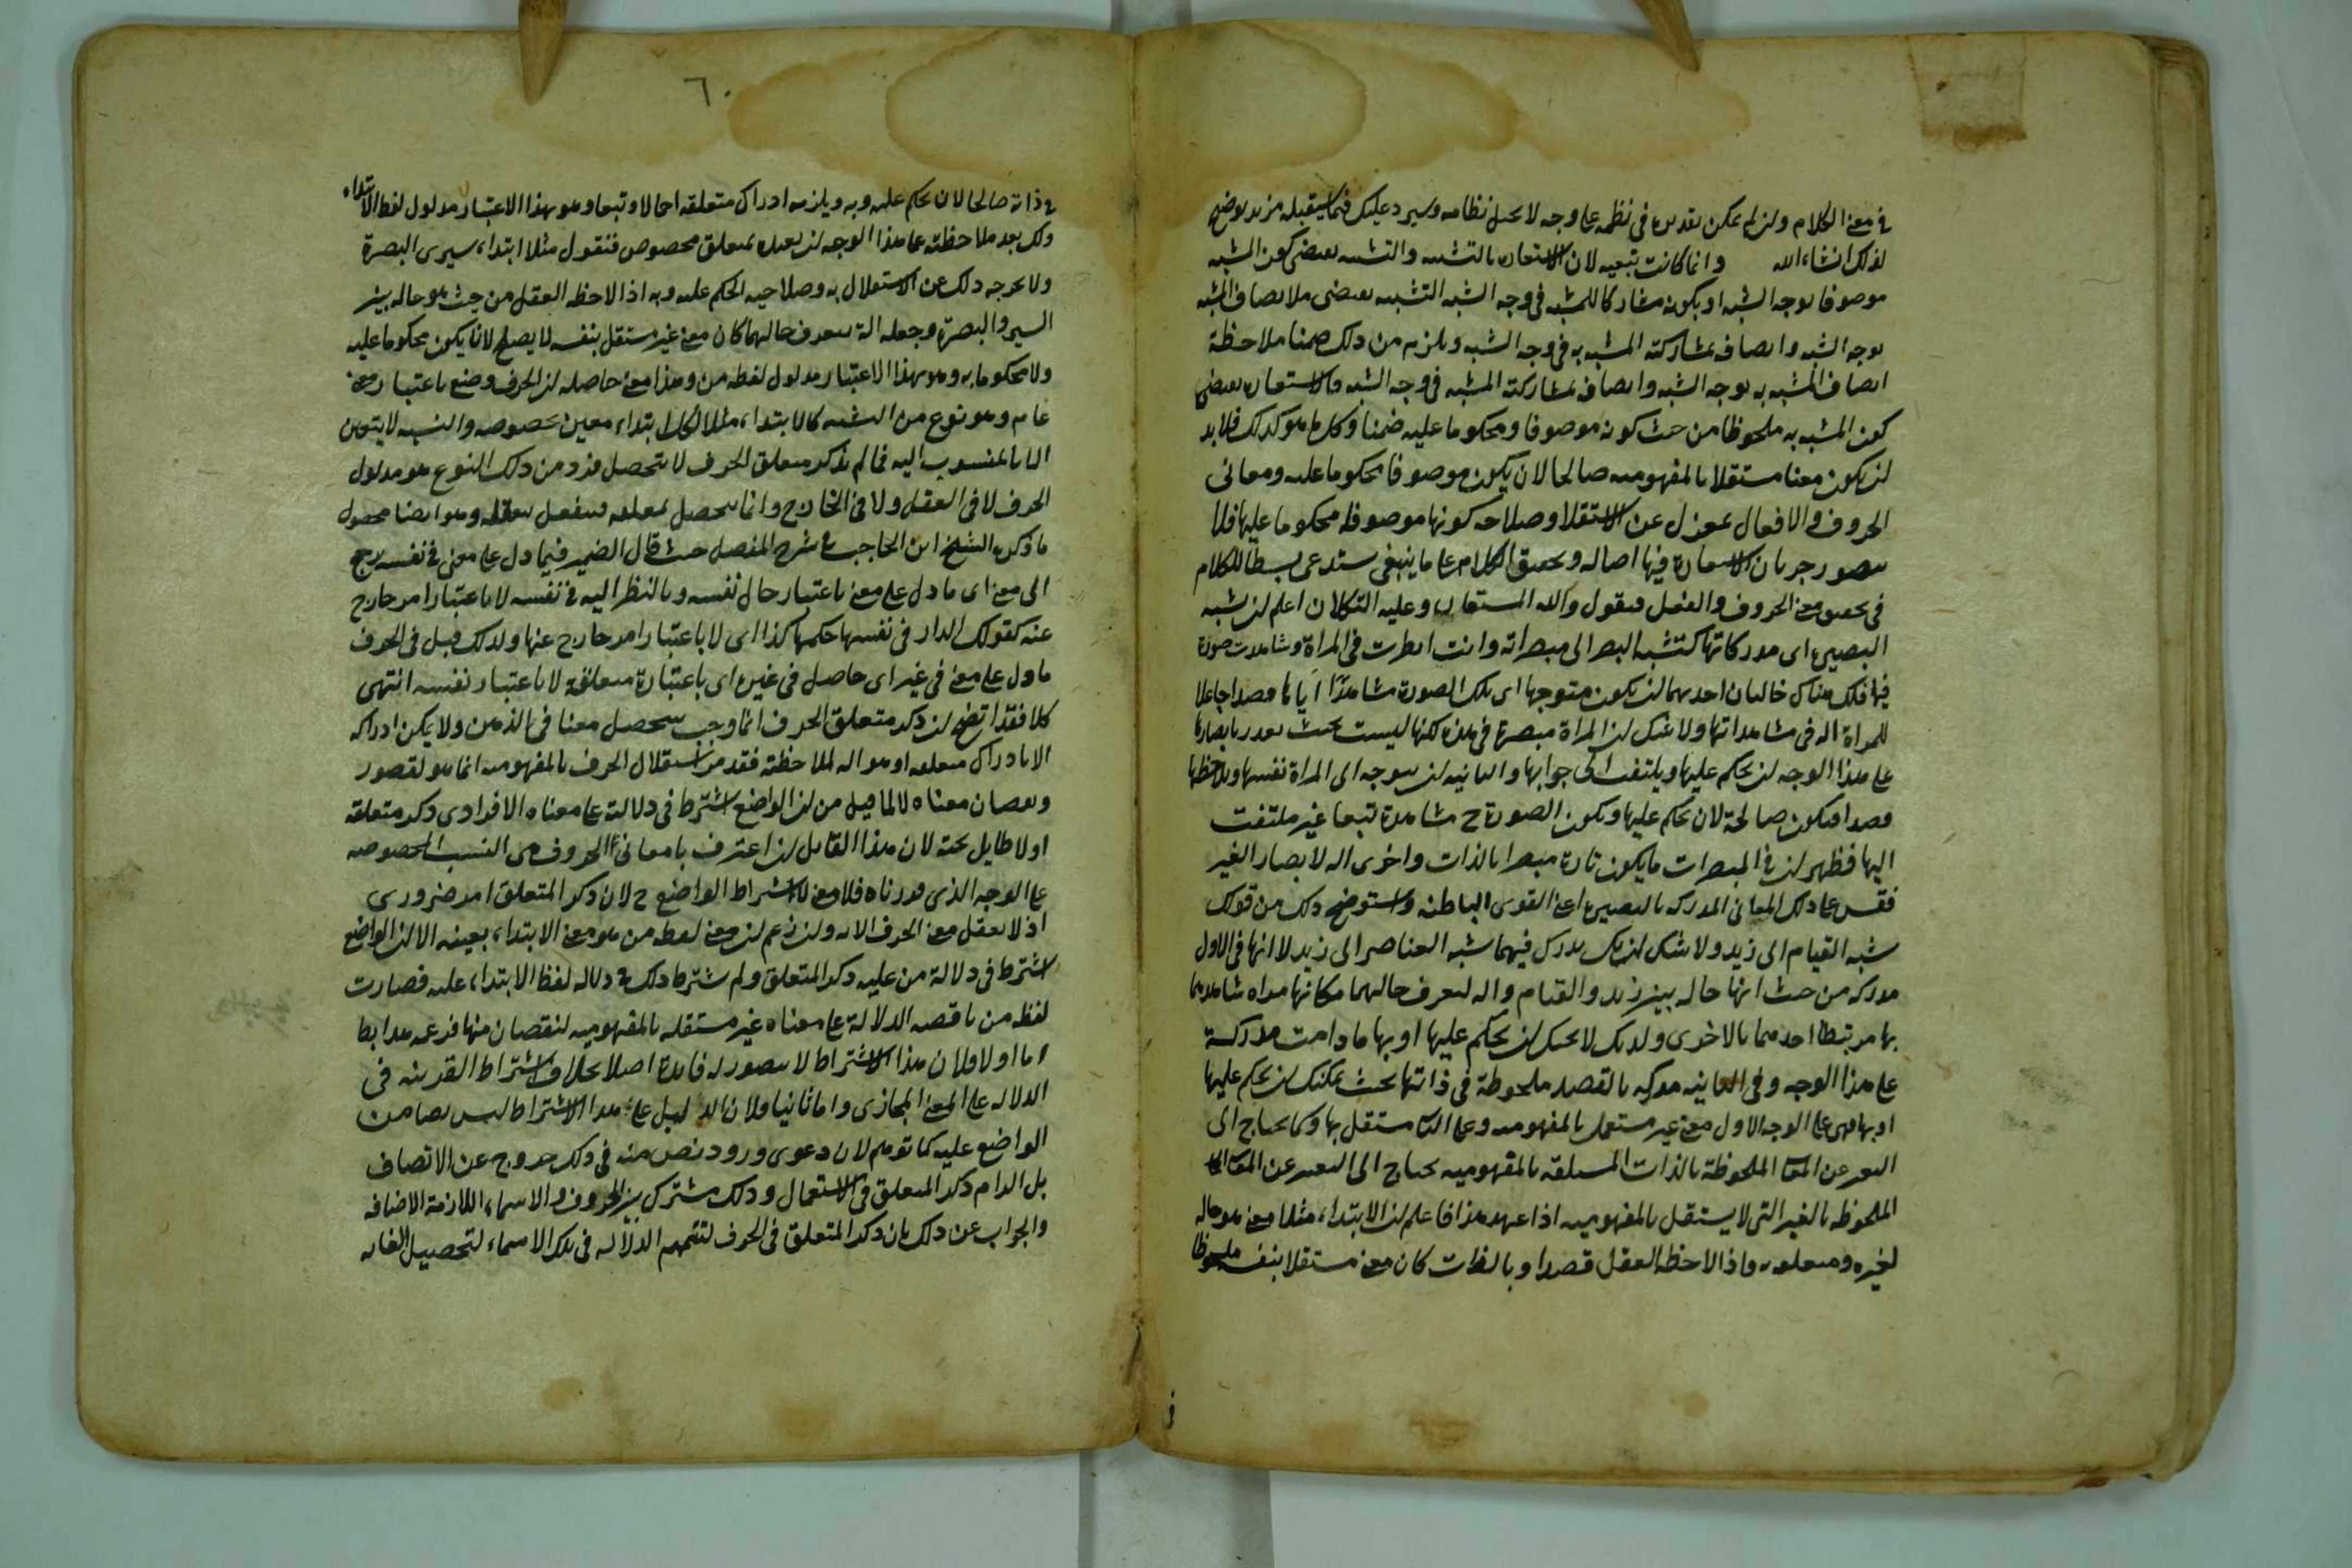 في معنى الكلام وان لم يمكن تقديره في نظمه على وجه لا يختل نظامه وسيرد عليك فيما ستقبله مزيد توضيح
لذلك انشاء الله وانما كانت تبعيه لان الاستعاره بالتشبيه والتشبيه يقتضى كون المشبه
موصوفا بوجه الشبه او بكونه مشاركا للمشبه في وجه الشبه التشبيه يقتضى ملا اتصاف المشبه
بوجه الشبه واتصافه بمشاركته المشبه به في وجه الشبه ويلزم من ذلك ضمنا ملاحظة
اتصاف المشبه به بوجه الشبه واتصافه بمشاركته المشبه في وجه الشبه والاستعاره يقتضى
كون المشبه به ملحوظا من حيث كونه موصوفا ومحكوما عليه ضمنا وكل ما هو كذلك فلا بد
ان يكون معنا مستقلا بالمفهوميه صالحا لان يكون موصوفا محكوما عليه ومعانى
الحروف والافعال بمعزل عن الاستقلا وصلاحه كونها موصوفه محكوما عليها فلا
يتصور جريان الاستعارة فيها اصاله وتحقيق الكلام على ما ينبغى يستدعى بسطا للكلام
في تحقيق معنى الحروف والفعل فنقول والله المستعان وعليه التكلان اعلم ان نسبه
البصيره اى مدركاتها كنسبه البصر الى مبصراته وانت اذا نظرت في المراة وشاهدت صورة
فيها فلك هناك حالتان احدهما ان يكون متوجها اى تلك الصورة مشاهدًا اياها قصدا جاعلا
للمراة اله في مشاهداتها ولا شك ان المراة مبصرة في هذه لكنها ليست بحيث تقدر بابصارها
على هذا الوجه ان يحكم عليها ويلتفت الى جوابها والثانيه ان يتوجه اى المراة نفسها ويلاحظها
قصدا فيكون صالحة لان يحكم عليها ويكون الصورة ح مشاهدة تبعا غير ملتفت
اليها فظهر ان في المبصرات ما يكون تارة مبصرا بالذات واخرى اله لابصار الغير
فقس على ذلك المعانى المدركه بالبصيره اعنى القوى الباطنه واستوضح ذلك من قولك
نسبه القيام الى زيد ولا شك انك تدرك فيهما نسبه العناصر الى زيد لا انها في الاول
مدركه من حيث انها حاله بين زيد والقيام واله لتعرف حالهما فكانها مراه شاهدهما
بها مرتبطا احدهما بالاخرى ولذلك لا يمكنك ان يحكم عليها او بها ما دامت مدركة
على هذا الوجه وفي الثانيه مدركه بالقصد ملحوظة في ذاتها بحيث يمكنك ان يحكم عليها
او بها فهى على الوجه الاول معنى غير مستقل بالمفهوميه وعلى الثانى مستقل بها وكما يحتاج الى
التعبير عن المعانى الملحوظة بالذات المستقله بالمفهوميه يحتاج الى التعبير عن المعانى
الملحوظه بالغير التى لا يستقل بالمفهوميه اذا عهد هذا فاعلم ان الابتداء مثلا معنى هو حاله
لغيره ومتعلقه فاذا لاحظه العقل قصدا وبالذات كان معنى مستقلا بنفسه ملحوظا
ف
٦٠
في ذاته صالحا لان يحكم عليه وبه ويلزمه ادراك متعلقه اجمالا وتبعا وهو بهذا الاعتبار مدلول لفظ الابتداء
ولك بعد ملاحظته على هذا الوجه ان تقيده بمتعلق مخصوص فنقول مثلا ابتداء سيرى البصرة
ولا يخرجه ذلك عن الاستقلال به وصلاحيه الحكم عليه وبه اذا لاحظه العقل من حيث هو حاله بين
السير والبصرة وجعله الة يتعرف حالهما كان معنى غير مستقل بنفسه لا يصلح لان يكون محكوما عليه
ولا محكوما به وهو بهذا الاعتبار مدلول لفظه من وهذا معنى حاصله ان الحرف وضع باعتبار معنى
عام وهو نوع من النسبه كالابتداء مثلا لكل ابتداء معين بخصوصه والنسبه لا يتعين
الا بالمنسوب اليه فما لم يذكر متعلق الحرف لا يتحصل فرد من ذلك النوع هو مدلول
الحرف لا في العقل ولا في الخارج وانما يتحصل بمتعلقه فيتعقل بتعقله وهو ايضا محصول
ما ذكره الشيخ ابن الحاجب في شرح المفصل حيث قال الضمير فيما دل على معنى في نفسه يرجع
الى معنى اى ما دل على معنى باعتبار حال نفسه وبالنظر اليه في نفسه لا باعتبار امر خارج
عنه كقولك الدار في نفسها حكمها كذا اى لا باعتبار امر خارج عنها ولذلك قيل في الحرف
ما دل على معنى في غير اى حاصل في غيره اى باعتبارة متعلقة لا باعتبار نفسه انتهى
كلا فقد اتضح ان ذكر متعلق الحرف انما وجب ليتحصل معنا في الذهن ولا يمكن ادراكه
الا بادراك متعلقه او هو اله لملاحظته فقدم استقلال الحرف بالمفهوميه انما هو لقصور
ونقصان معناه لا لما قيل من ان الواضع اشترط في دلالته على معناه الافرادى ذكر متعلقه
اولا طايل تحته لان هذا القايل ان اعترف بان معانى الحروف هي النسب المخصوصه
على الوجه الذى قررناه فلا معنى لاشتراط الواضع ح لان ذكر المتعلق امر ضرورى
اذ لا يعقل معنى الحرف الا به وان زعم ان معنى لفظه من هو معنى الابتداء بعينه الا ان الواضع
اشترط في دلالة من عليه ذكر المتعلق ولم يشترط ذلك في دلاله لفظ الابتداء عليه فصارت
لفظه من ناقصه الدلالة على معناه غير مستقله بالمفهوميه لنقصان منها
اما اولا فلان هذا الاشتراط لا يتصور له فائدة اصلا بخلاف اشتراط القرينه في
الدلاله على المعنى المجازى واما ثانيا فلان الدليل على هذا الاشتراط ليس نصا من
الواضع عليه كما توهم لان دعوى ورود نص منه في ذلك خروج عن الانصاف
بل الزام ذكر المتعلق في الاستعمال وذلك مشترك بين الحروف والاسماء اللازمة الاضافه
والجواب عن ذلك بان ذكر المتعلق في الحرف لتتميم الدلاله في تلك الاسماء لتحصيل الغايه